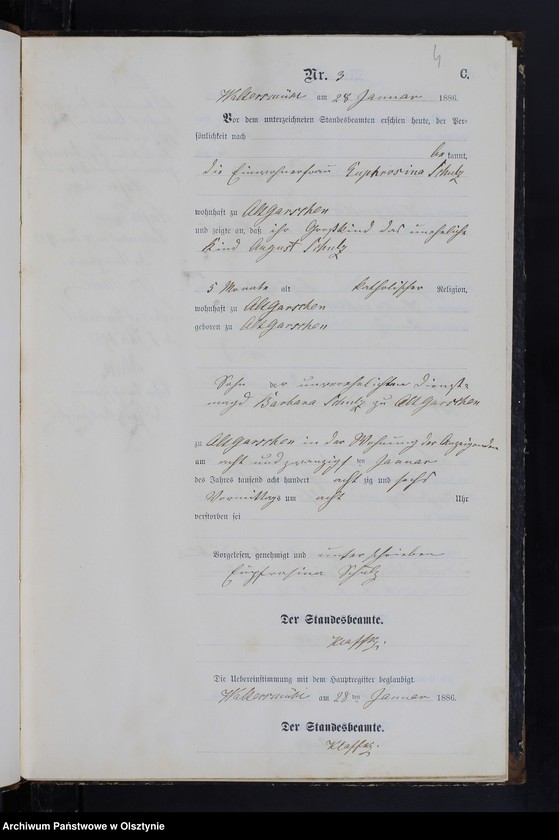 4
Nr. 3 C.
Waltersmühl am 28 Januar 1886.
Vor dem unterzeichneten Standesbeamten erschien heute, der Per-
sönlichkeit nach
be kannt,
die Einwohnerfrau Euphrosina Schulz
wohnhaft zu Altgarschen
und zeigte an, daß ihr Großkind das uneheliche
Kind August Schulz
5 Monate alt katholischer Religion,
wohnhaft zu Altgarschen
geboren zu Altgarschen
Sohn der unverehelichten Dienst-
magd Barbara Schulz zu Altgarschen
zu Altgarschen in der Wohnung der Anzeigenden
am acht und zwanzigsten Januar
des Jahres tausend acht hundert acht zig und sechs
Vormittags um acht Uhr
verstorben sei
Vorgelesen, genehmigt und unterschrieben
Eupfrosina Schulz
Der Standesbeamte.
Klaffki.
Die Uebereinstimmung mit dem Hauptregister beglaubigt.
Waltersmühl am 28ten Januar 1886.
Der Standesbeamte.
Klaffki.
Archiwum Państwowe w Olsztynie